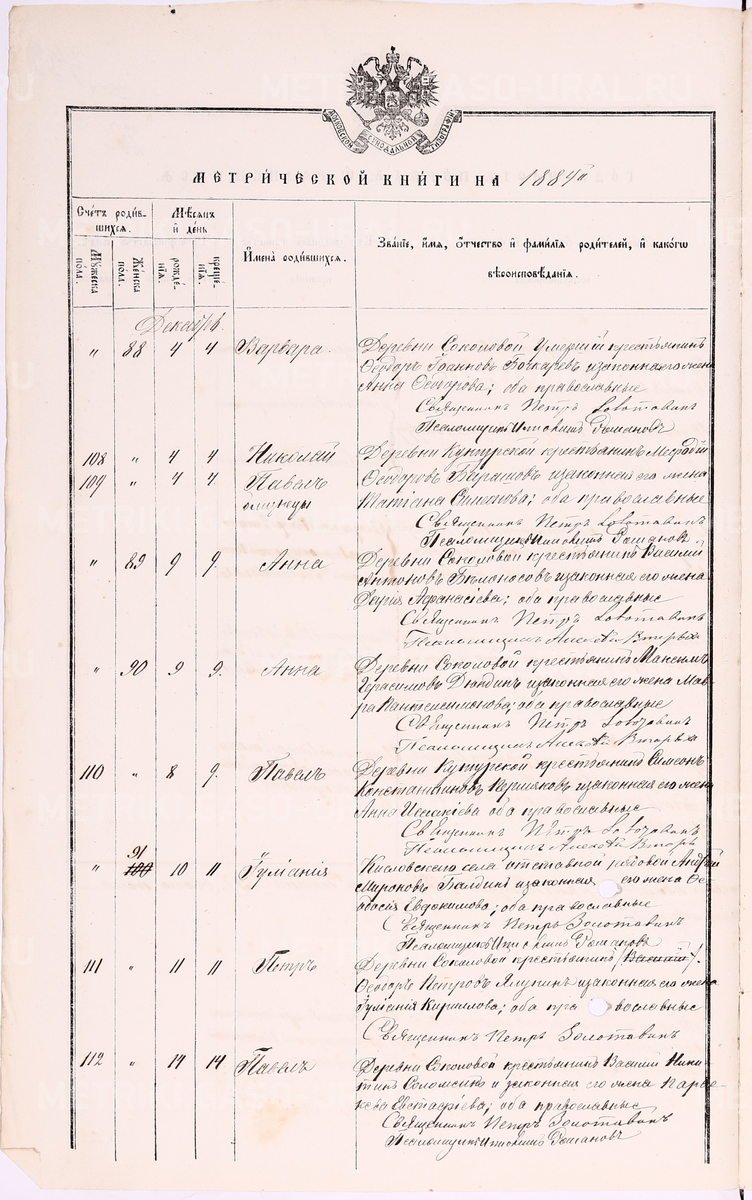 МОСКОВСКОЙ СѴНОДАЛЬНОЙ ТИПОГРАФІИ
МЕТРИ́ЧЕСКОЙ КНИ́ГИ НА 1884 г
Сче́тъ роди́в-
шихся.
Мꙋ́жеска
по́ла.
Же́нска
по́ла.
Мѣ́сяцъ
и де́нь
рожде́-
нїя.
креще́-
нїя.
И́мена родившихся.
Зва́нїе, и́мя, о́тчество и фами́лїя роди́телей, и како́гѡ
вѣроисповѣ́данїя.
Декабрь.
" 88 4 4 Варвара.
Деревни Соколовой умершій крестьянинъ
Ѳеодоръ Іоанновъ Бочкаревъ и законная его жена
Анна Ѳеодорова; оба православные
Священникъ Петръ Золотавинъ
Псаломщикъ
108 " 4 4 Николай
109 " 4 4 Павелъ
близнецы
Деревни Кунгурской крестьянинъ
Ѳеодоровъ и законная его жена
Татіана; оба православные
Священникъ Петръ Золотавинъ
Псаломщикъ
" 89 9 9. Анна
Деревни Соколовой крестьянинъ Василій
Антоновъ Бѣлоносовъ и законная его жена
Дарія Аѳанасіева; оба православные
Священникъ Петръ Золотавинъ
Псаломщикъ Алексѣй Вторыхъ
" 90 9 9. Анна
Деревни Соколовой крестьянинъ Максимъ
Герасимовъ Дюндинъ и законная его жена Мав-
ра Пантелеимонова; оба православные
Священникъ Петръ Золотавинъ
Псаломщикъ Алексѣй Вторыхъ
110 " 8 9. Павелъ
Деревни Кунгурской крестьянинъ Симеонъ
Константиновъ и законная его жена
Анна Исаакіева оба православные
Священникъ Петръ Золотавинъ
Псаломщикъ Алексѣй Вторыхъ
91
" 100 10 11 Іуліанія
Кисловскаго села отставной рядовой Андрей
Мироновъ Балдинъ и законная его жена Ѳе-
досія Евдокимова; оба православные
Священникъ Петръ Золотавинъ
Псаломщикъ
111 " 11 11 Петръ
Деревни Соколовой крестьянинъ (Василій)
Ѳеодоръ Петровъ Ялунинъ и законная его жена
Іуліанія Кириллова; оба православные
Священникъ Петръ Золотавинъ
112 " 14 14 Павелъ
Деревни Соколовой крестьянинъ Василій Ники-
тинъ и законная его жена Параске-
кева Евстафіева; оба православные
Священникъ Петръ Золотавинъ
Псаломщикъ